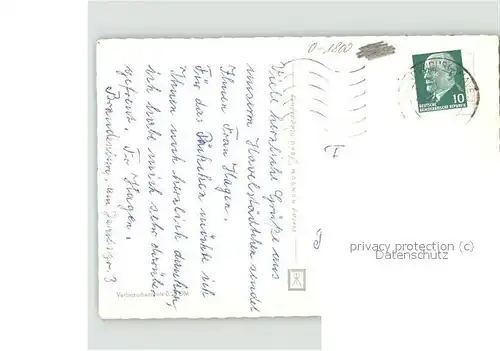 0-1800
10
DEUTSCHE
DEMOKRATISCHE REPUBLIK
Viele herzliche Grüße aus
unserem Havelstädtchen sendet
Ihnen Frau Hagen.
Für das Päckchen möchte ich
Ihnen noch herzlich danken,
ich habe mich sehr darüber
gefreut. Fr. Hagen.
Brandenburg, am
privacy protection (c)
Datenschutz